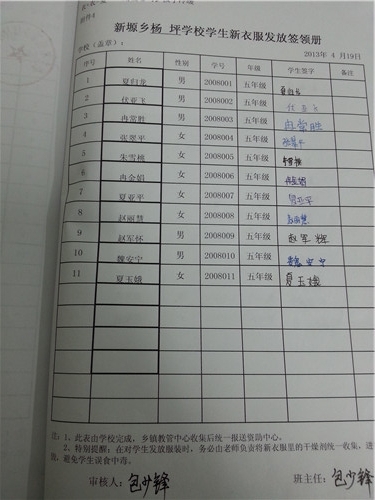 附件4
新塬乡杨 坪学校学生新衣服发放签领册
学校（盖章）： 2013年 4月19日
序号 姓名 性别 学号 年级 学生签字 备注
1 夏归龙 男 2008001 五年级 夏归龙
2 伏亚飞 男 2008002 五年级 伏亚飞
3 冉常胜 男 2008003 五年级 冉常胜
4 张翠平 女 2008004 五年级 张翠平
5 朱雪梅 女 2008005 五年级
6 冉金娟 女 2008006 五年级
7 夏亚平 女 2008007 五年级 夏亚平
8 赵丽慧 女 2008008 五年级 赵丽慧
9 赵军怀 男 2008009 五年级 赵军怀
10 魏安宁 男 2008010 五年级 魏安宁
11 夏玉娥 女 2008011 五年级 夏玉娥
注：1、此表由学校完成，乡镇教管中心收集后统一报送资助中心。
2、特别提醒：在对学生发放服装时，务必由老师负责将新衣服里的干燥剂统一收集，进
，避免学生误食中毒。
审核人：包少锋 班主任：包少锋